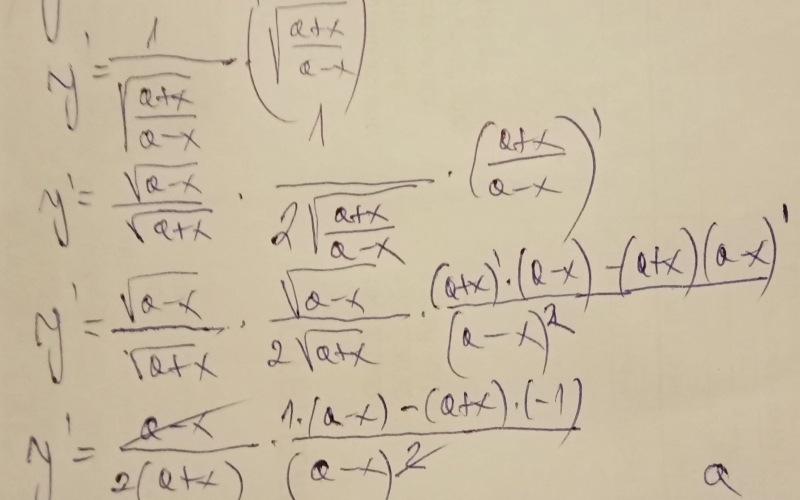 y' = 1/√((a+x)/(a-x)) · (√((a+x)/(a-x)))'
y' = √(a-x)/√(a+x) · 1/(2√((a+x)/(a-x))) · ((a+x)/(a-x))'
y' = √(a-x)/√(a+x) · √(a-x)/(2√(a+x)) · ((a+x)'·(a-x) - (a+x)(a-x)')/(a-x)²
y' = (a-x)/(2(a+x)) · (1·(a-x) - (a+x)·(-1))/(a-x)²
a